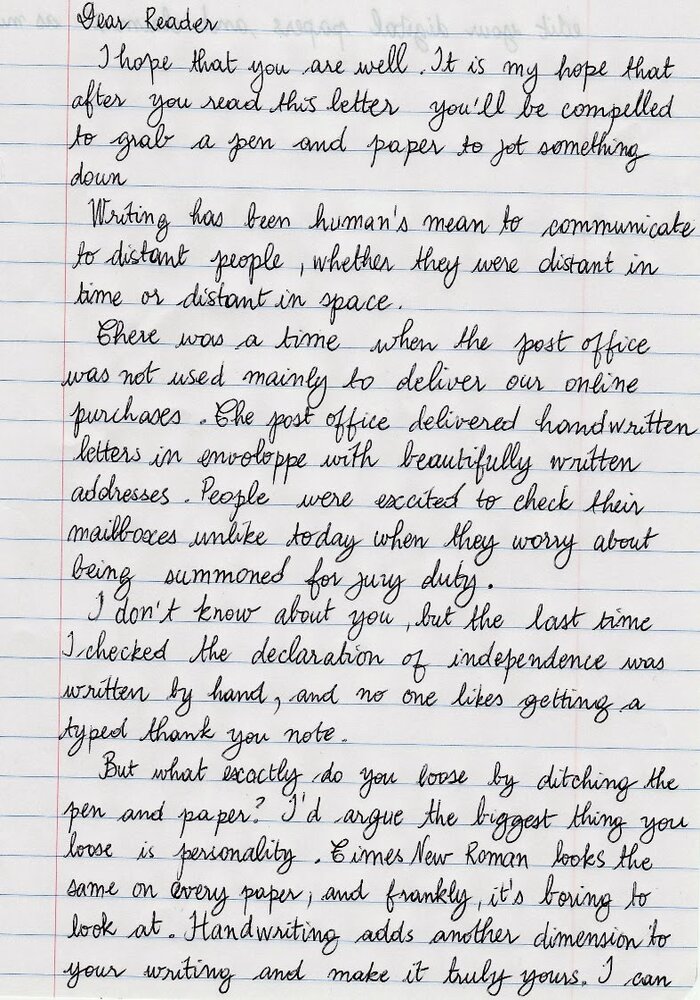 Dear Reader
I hope that you are well. It is my hope that
after you read this letter you'll be compelled
to grab a pen and paper to jot something
down
Writing has been human's mean to communicate
to distant people, whether they were distant in
time or distant in space.
There was a time when the post office
was not used mainly to deliver our online
purchases. The post office delivered handwritten
letters in envoloppe with beautifully written
addresses. People were excited to check their
mailboxes unlike today when they worry about
being summoned for jury duty.
I don't know about you, but the last time
I checked the declaration of independence was
written by hand, and no one likes getting a
typed thank you note.
But what exactly do you loose by ditching the
pen and paper? I'd argue the biggest thing you
loose is personality. Times New Roman looks the
same on every paper, and frankly, it's boring to
look at. Handwriting adds another dimension to
your writing and make it truly yours. I can